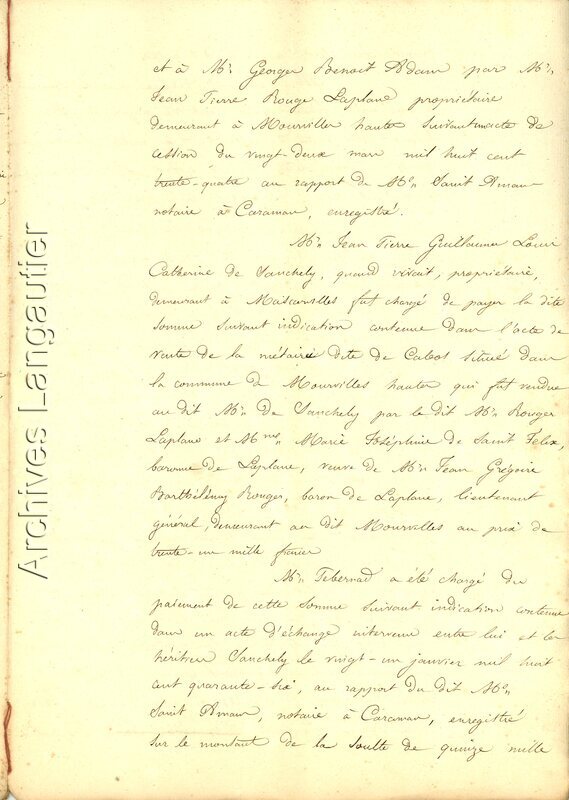 et à Mr. Georges Benoit Adam par Mr.
Jean Pierre Rouge Laplane propriétaire
demeurant à Mourvilles hautes suivant acte de
cession du vingt-deux mars mil huit cent
trente-quatre au rapport de Me. Saint Amans
notaire à Caraman, enregistré.
Mr. Jean Pierre Guillaume Louis
Catherine de Sanchely, quand vivait, propriétaire,
demeurant à Mascarvilles fut chargé de payer la dite
somme suivant indication contenue dans l'acte de
vente de la métairie dite de Cabos située dans
la commune de Mourvilles hautes qui fut vendue
au dit Mr. de Sanchely par le dit Mr. Rouger
Laplane et Mme. Marie Joséphine de Saint Felix,
baronne de Laplane, veuve de Mr. Jean Grégoire
Barthélémy Rouger, baron de Laplane, lieutenant
général, demeurant au dit Mourvilles au prix de
trente-un mille francs
Mr. a été chargé du
paiement de cette somme suivant indication contenue
dans un acte d'échange intervenu entre lui et les
héritiers Sanchely le vingt-un janvier mil huit
cent quarante-six, au rapport du dit Me.
Saint Amans, notaire à Caraman, enregistré
sur le montant de la soulte de quinze mille
Archives Langautier